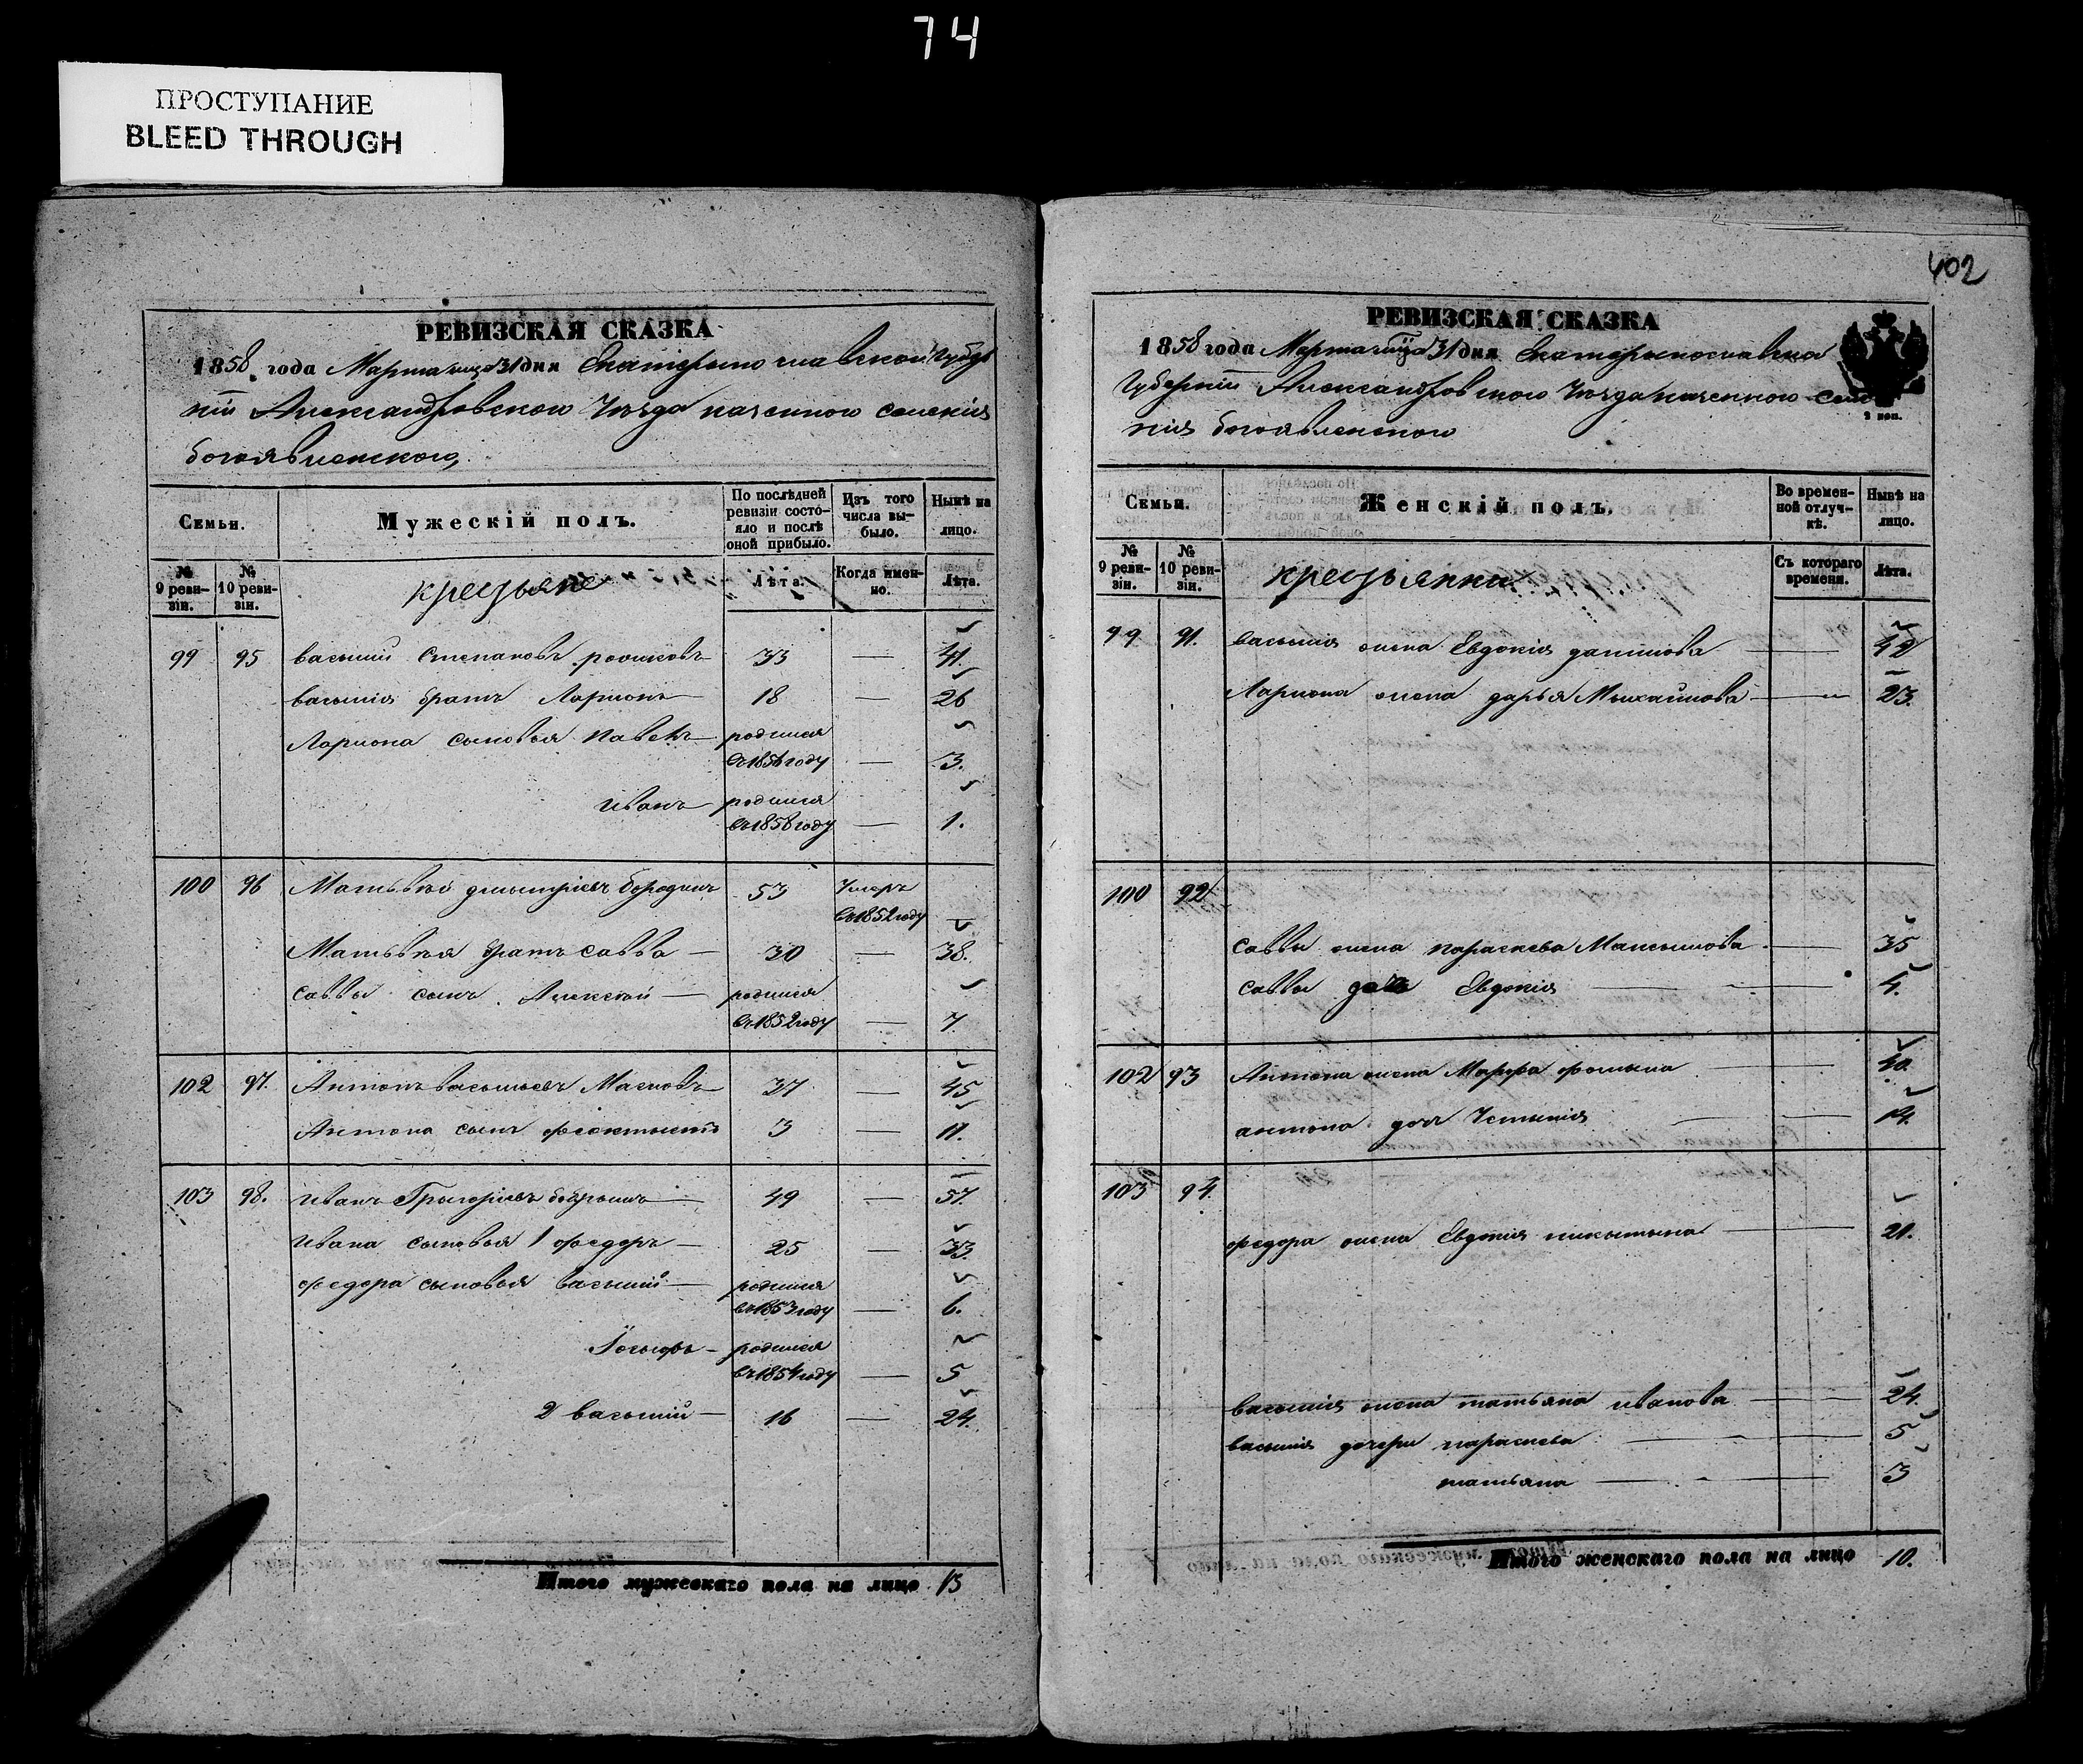 74
ПРОСТУПАНИЕ
BLEED THROUGH
РЕВИЗСКАЯ СКАЗКА
1858 года Марта мца 31 дня Екатерынославской губер
ніи Александровского Уѣзда казенного селенія
богоявленского
Семьи.
Мужескій полъ.
По послѣдней ревизіи состояло и послѣ оной прибыло.
Изъ того числа выбыло.
Нынѣ на лицо.
№ 9 ревизіи.
№ 10 ревизіи.
крестьяне
Лѣта.
Когда именно.
Лѣта.
99 95 василий Степановъ 33 — 41.
василия братъ Ларионъ 18 — 26
Лариона сыновья Павелъ родился
въ 1856 году — 3.
иванъ родился
въ 1858 году — 1.
100 96 Матьвѣй дмытріевъ бородинъ 53 Умеръ
въ 1852 году
Матьвѣя братъ савва — 30 — 38.
саввы сынъ Алексѣй — родился
въ 1852 году — 7
102 97. Антонъ васыльевъ Масловъ 37 — 45
Антона сынъ феоктыстъ 3 — 11.
103 98. иванъ Грыгорьевъ 49 — 57.
ивана сыновья 1 федоръ — 25 — 33.
федора сыновья василий — родился
въ 1853 году — 6.
родился
въ 1854 году — 5
2 василий — 16 — 24.
Итого мужескаго пола на лицо 13
402
РЕВИЗСКАЯ СКАЗКА
1858 года Марта мца 31 дня Екатерынославской
Губерніи Александровского Уѣзда казенного селе
нія богоявленского
2 коп.
Семьи.
Женскій полъ.
Во временной отлучкѣ.
Нынѣ на лицо.
№ 9 ревизіи.
№ 10 ревизіи.
крестьянки
Съ котораго времени.
Лѣта.
99 91. василия жена Евдокия данилова — 42
Лариона жена дарья Михайлова — 23.
100 92
саввы жена параскева Максымова — 35
саввы дочь Евдокия — 4.
102 93 Антона жена Марфа фомына — 40.
антона дочь Устыния — 14.
103 94.
федора жена Евдокия никытына — 21.
василия жена татьяна иванова — 24.
василия дочери параскева — 5
татьяна — 3
Итого женскаго пола на лицо 10.